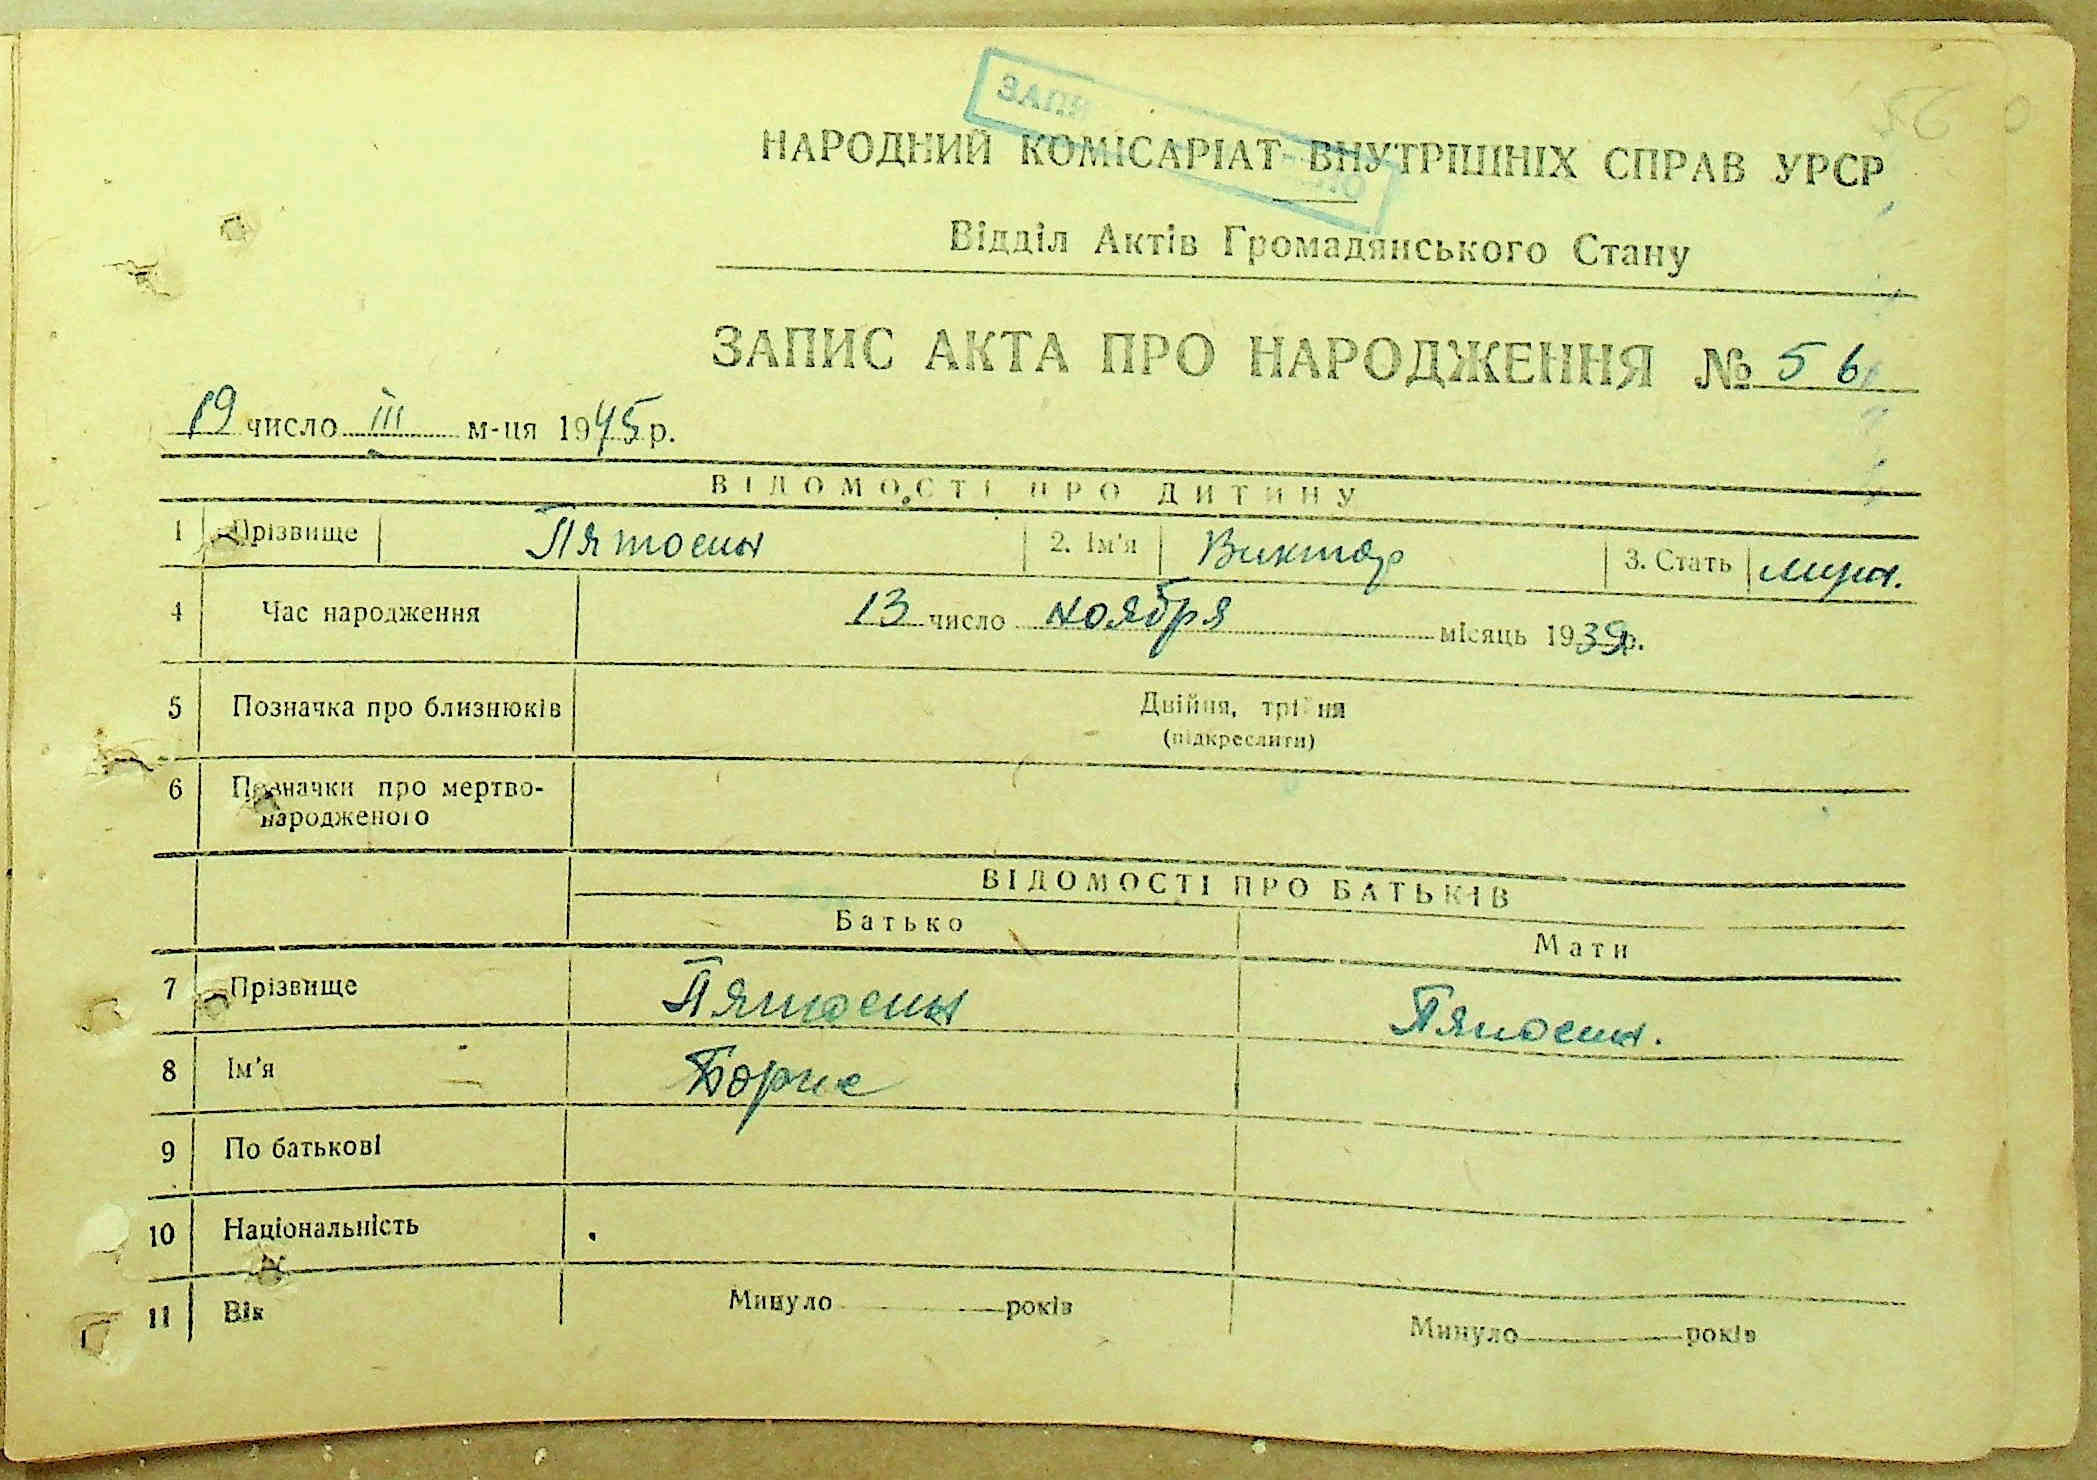 НАРОДНИЙ КОМІСАРІАТ ВНУТРІШНІХ СПРАВ УРСР
Відділ Актів Громадянського Стану
ЗАПИС АКТА ПРО НАРОДЖЕННЯ № 56
19 число III м-ця 1945 р.
ВІДОМОСТІ ПРО ДИТИНУ
1 Прізвище 2. Ім'я Виктор 3. Стать муж.
4 Час народження 13 число ноября місяць 1939 р.
5 Позначка про близнюків Двійня, трійня
(підкреслити)
6 Позначки про мертво-
народженого
ВІДОМОСТІ ПРО БАТЬКІВ
Батько Мати
7 Прізвище
8 Ім'я Борис
9 По батькові
10 Національність
11 Вік Минуло років Минуло років